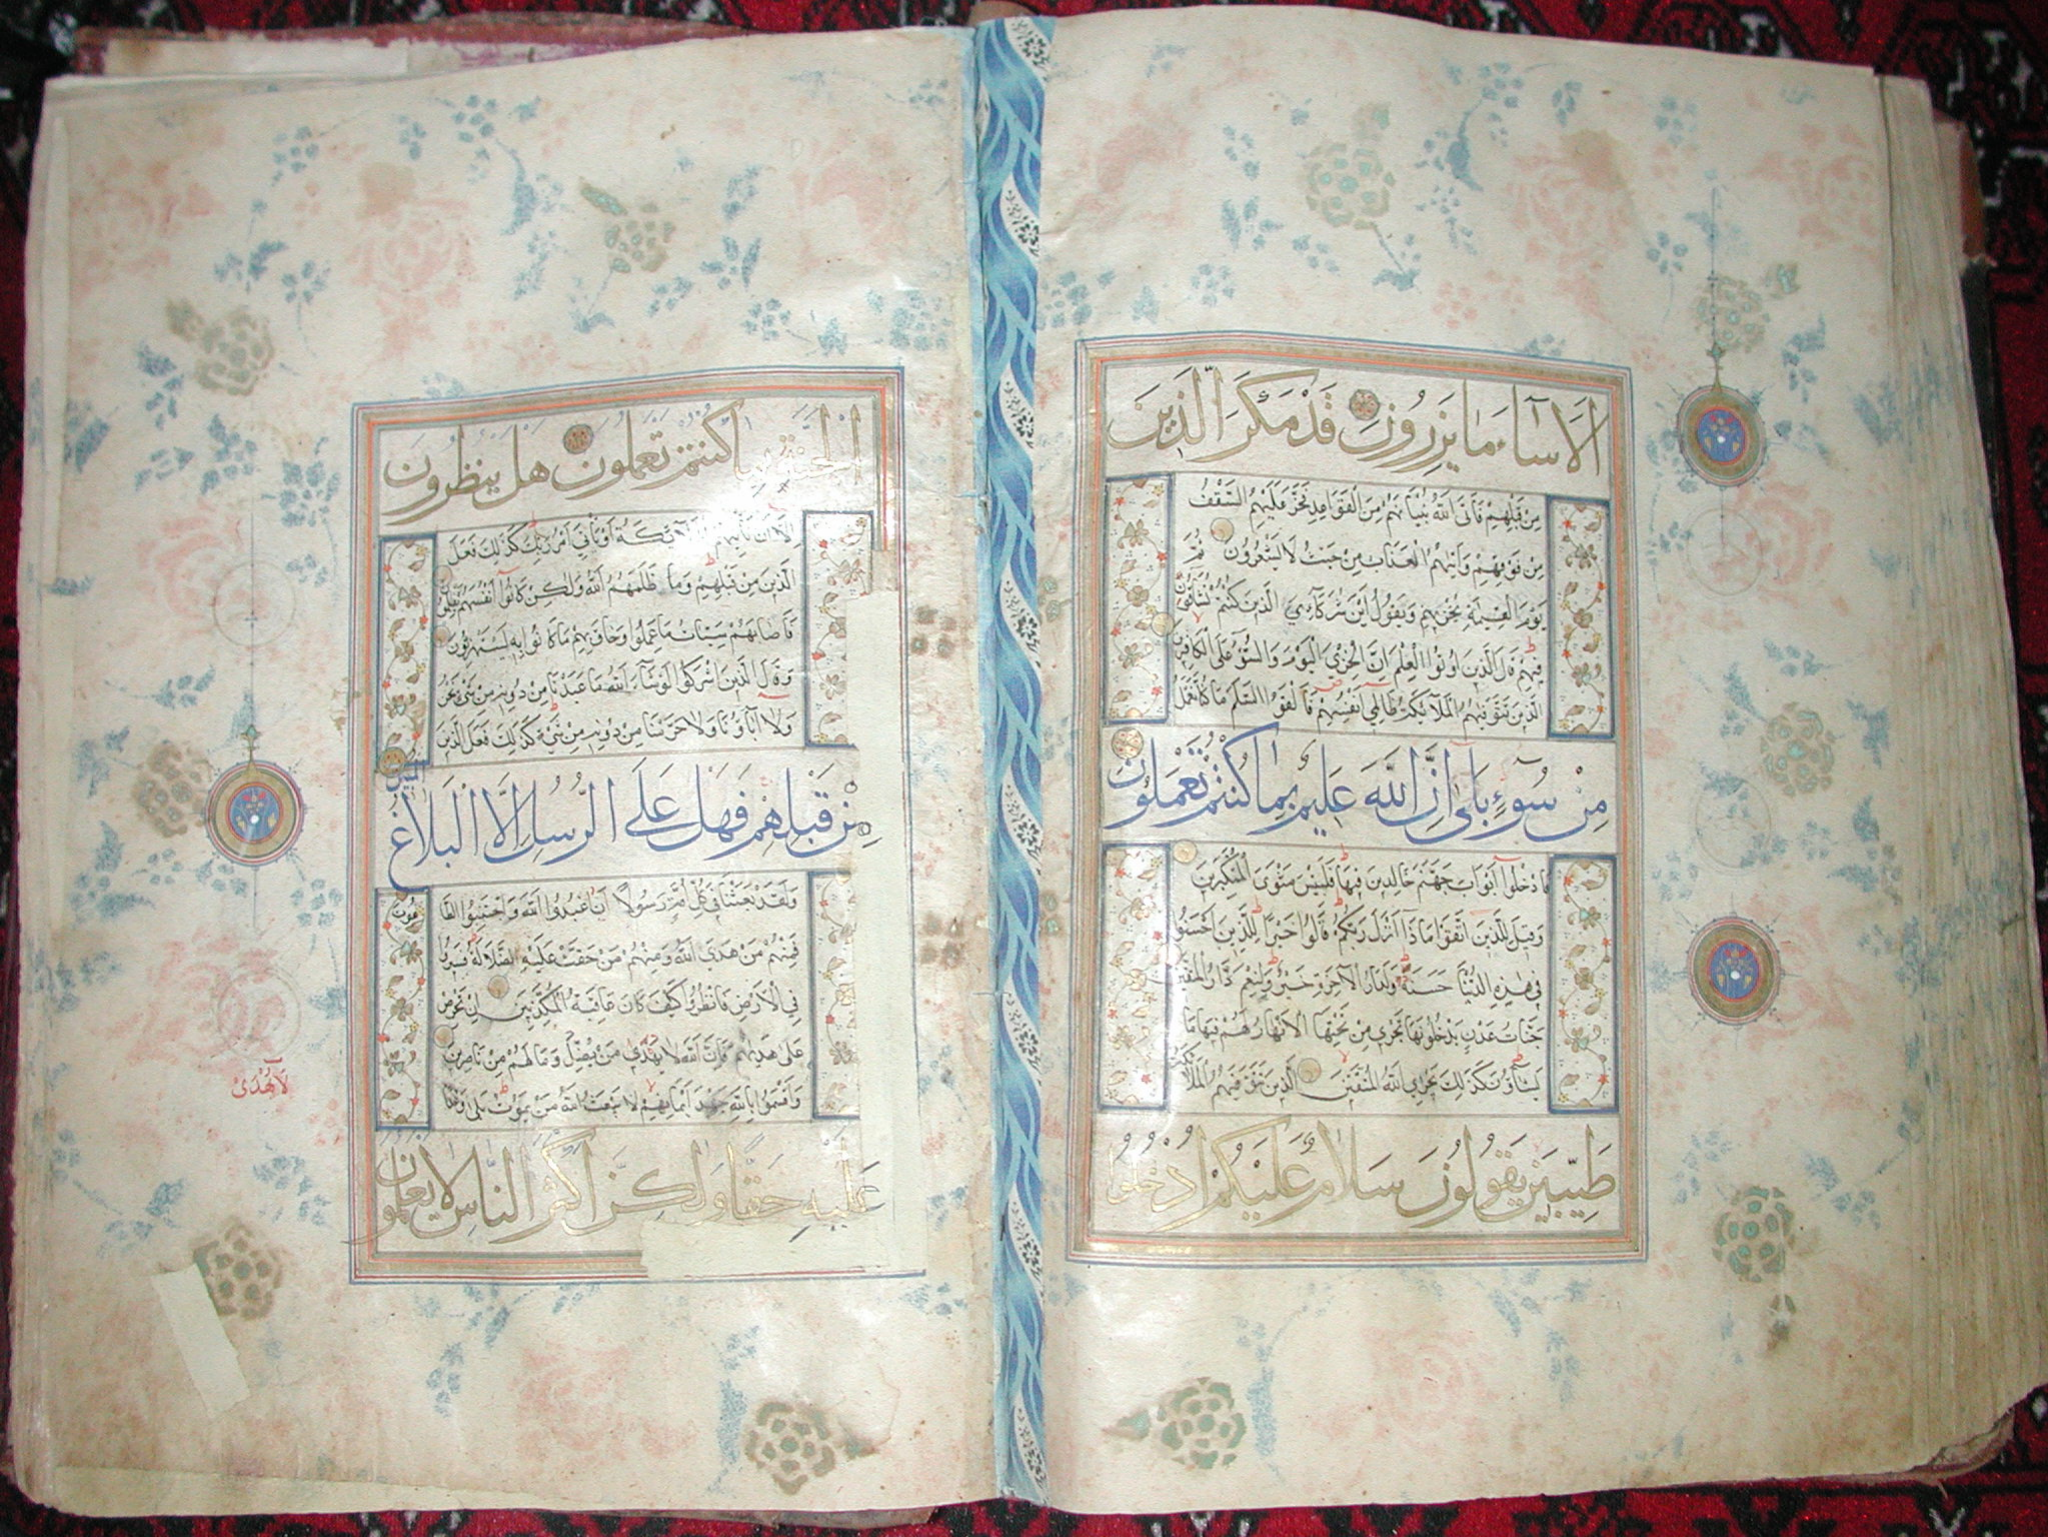 الا ساء ما يزرون قد مكر الذين
من قبلهم فاتى الله بنيانهم من القواعد فخر عليهم السقف
من فوقهم واتيهم العذاب من حيث لا يشعرون ثم
يوم القيمة يخزيهم ويقول اين شركائي الذين كنتم تشاقون
فيهم قال الذين اوتوا العلم ان الخزي اليوم والسوء على الكافرين
الذين تتوفيهم الملائكة ظالمي انفسهم فالقوا السلم ما كنا نعمل
من سوء بلى ان الله عليم بما كنتم تعملون
فادخلوا ابواب جهنم خالدين فيها فلبئس مثوى المتكبرين
وقيل للذين اتقوا ماذا انزل ربكم قالوا خيرا للذين احسنوا
في هذه الدنيا حسنة ولدار الآخرة خير ولنعم دار المتقين
جنات عدن يدخلونها تجري من تحتها الانهار لهم فيها ما
يشاؤن كذلك يجزي الله المتقين الذين تتوفيهم الملائكة
طيبين يقولون سلام عليكم ادخلوا
الجنة بما كنتم تعملون هل ينظرون
الا ان تاتيهم الملائكة او ياتي امر ربك كذلك فعل
الذين من قبلهم وما ظلمهم الله ولكن كانوا انفسهم يظلمون
فاصابهم سيئات ما عملوا وحاق بهم ما كانوا به يستهزؤن
وقال الذين اشركوا لو شاء الله ما عبدنا من دونه من شيء نحن
ولا اباؤنا ولا حرمنا من دونه من شيء كذلك فعل الذين
من قبلهم فهل على الرسل الا البلاغ المبين
ولقد بعثنا في كل امة رسولا ان اعبدوا الله واجتنبوا الطاغوت
فمنهم من هدى الله ومنهم من حقت عليه الضلالة فسيروا
في الارض فانظروا كيف كان عاقبة المكذبين ان تحرص
على هديهم فان الله لا يهدي من يضل وما لهم من ناصرين
واقسموا بالله جهد ايمانهم لا يبعث الله من يموت بلى وعدا
عليه حقا ولكن اكثر الناس لا يعلمون
لا يهدى